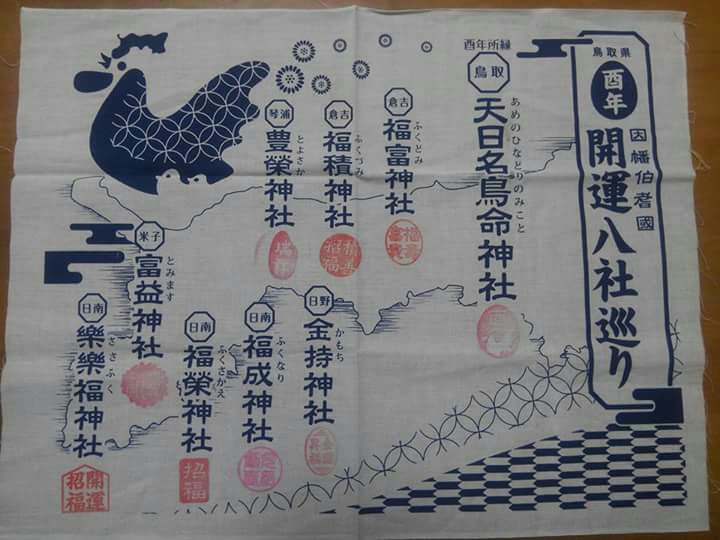 鳥取県
酉年
因幡伯耆國
開運八社巡り
酉年所縁
鳥取
天日名鳥命神社
あめのひなどりのみこと
倉吉
福富神社
ふくとみ
倉吉
福積神社
ふくづみ
琴浦
豊榮神社
とよさか
日野
金持神社
かもち
日南
福成神社
ふくなり
日南
福榮神社
ふくさかえ
招福
米子
富益神社
とみます
日南
樂樂福神社
ささふく
開運
招福